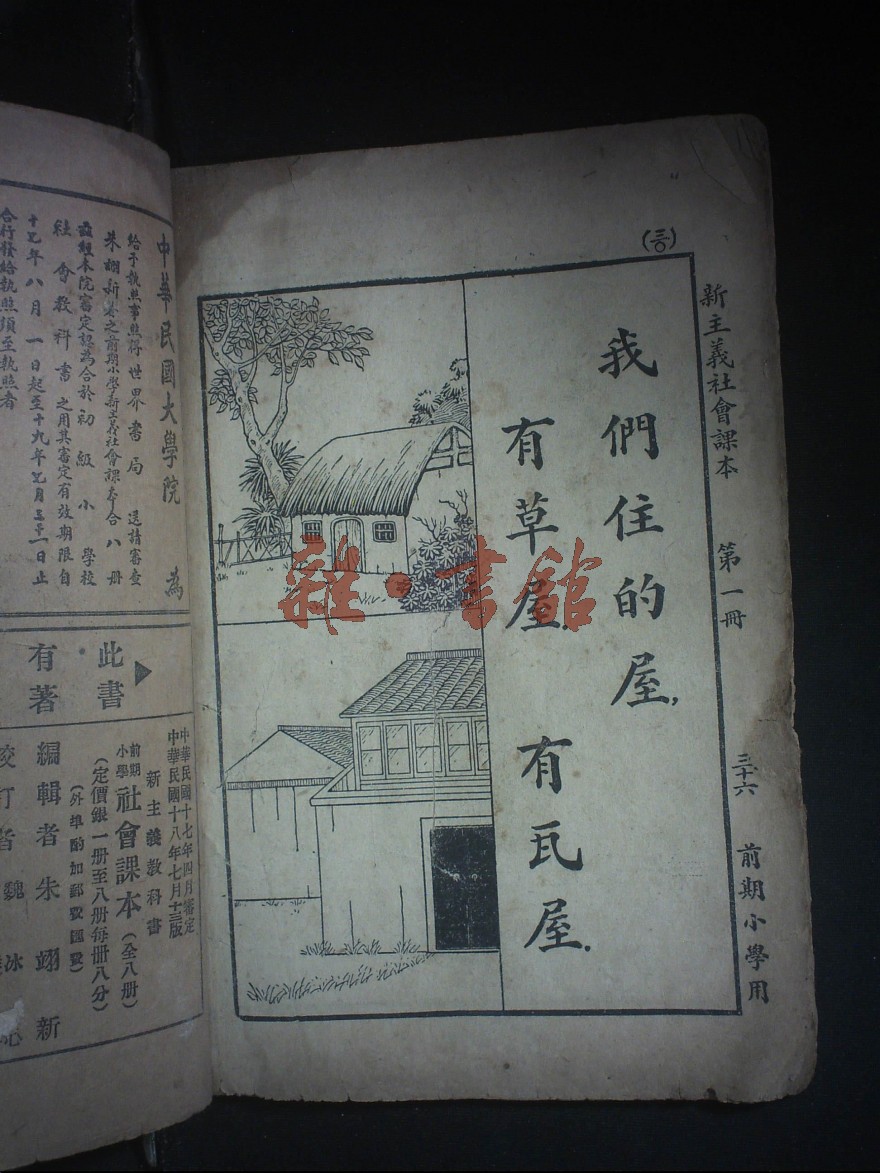 (三〇)
新主義社會課本　第一冊　三十六　前期小學用
我們住的屋,
有草屋.　有瓦屋.
雜·書館
中華民國大學院　為
給予執照事照得世界書局　送請審查
朱翊新等之前期小學新主義社會課本合八冊
茲經本院審定認為合於初級小學校
社會教科書之用其審定有效期限自
十七年八月一日起至十九年七月三十一日止
合行發給執照須至執照者
▶此書
有著
中華民國十七年四月審定
中華民國十八年七月十三版
新主義教科書
前期小學社會課本(全八冊)
(定價銀一册至八册每册八分)
(外埠酌加郵費匯費)
編輯者朱翊新
校訂者魏冰心